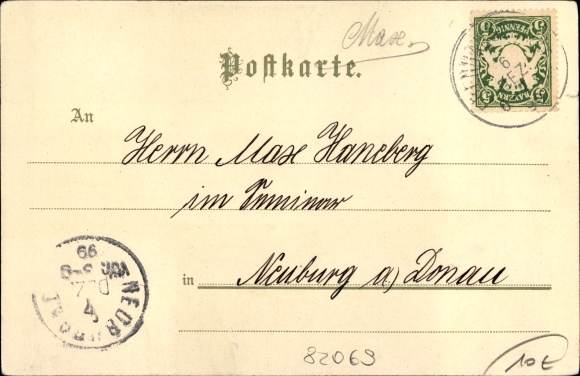 Max.
Postkarte.
5 PFENNIG 5
BAYERN
6
DEZ.
An
Herrn Max Haneberg
im Seminar
in Neuburg a/Donau
NEUBURG
99
7
82069
10 E